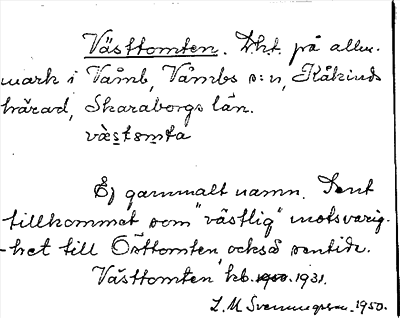 Västtomten. Tkt på allm.
mark i Våmb, Våmbs s:n, Kåkinds
härad, Skaraborgs län.
væstomta
Ej gammalt namn. Sent
tillkommet som "västlig" motsvarig-
-het till Östtomten, också sentida.
Västtomten kb. 1931.
L. M. Svenungsson. 1950.